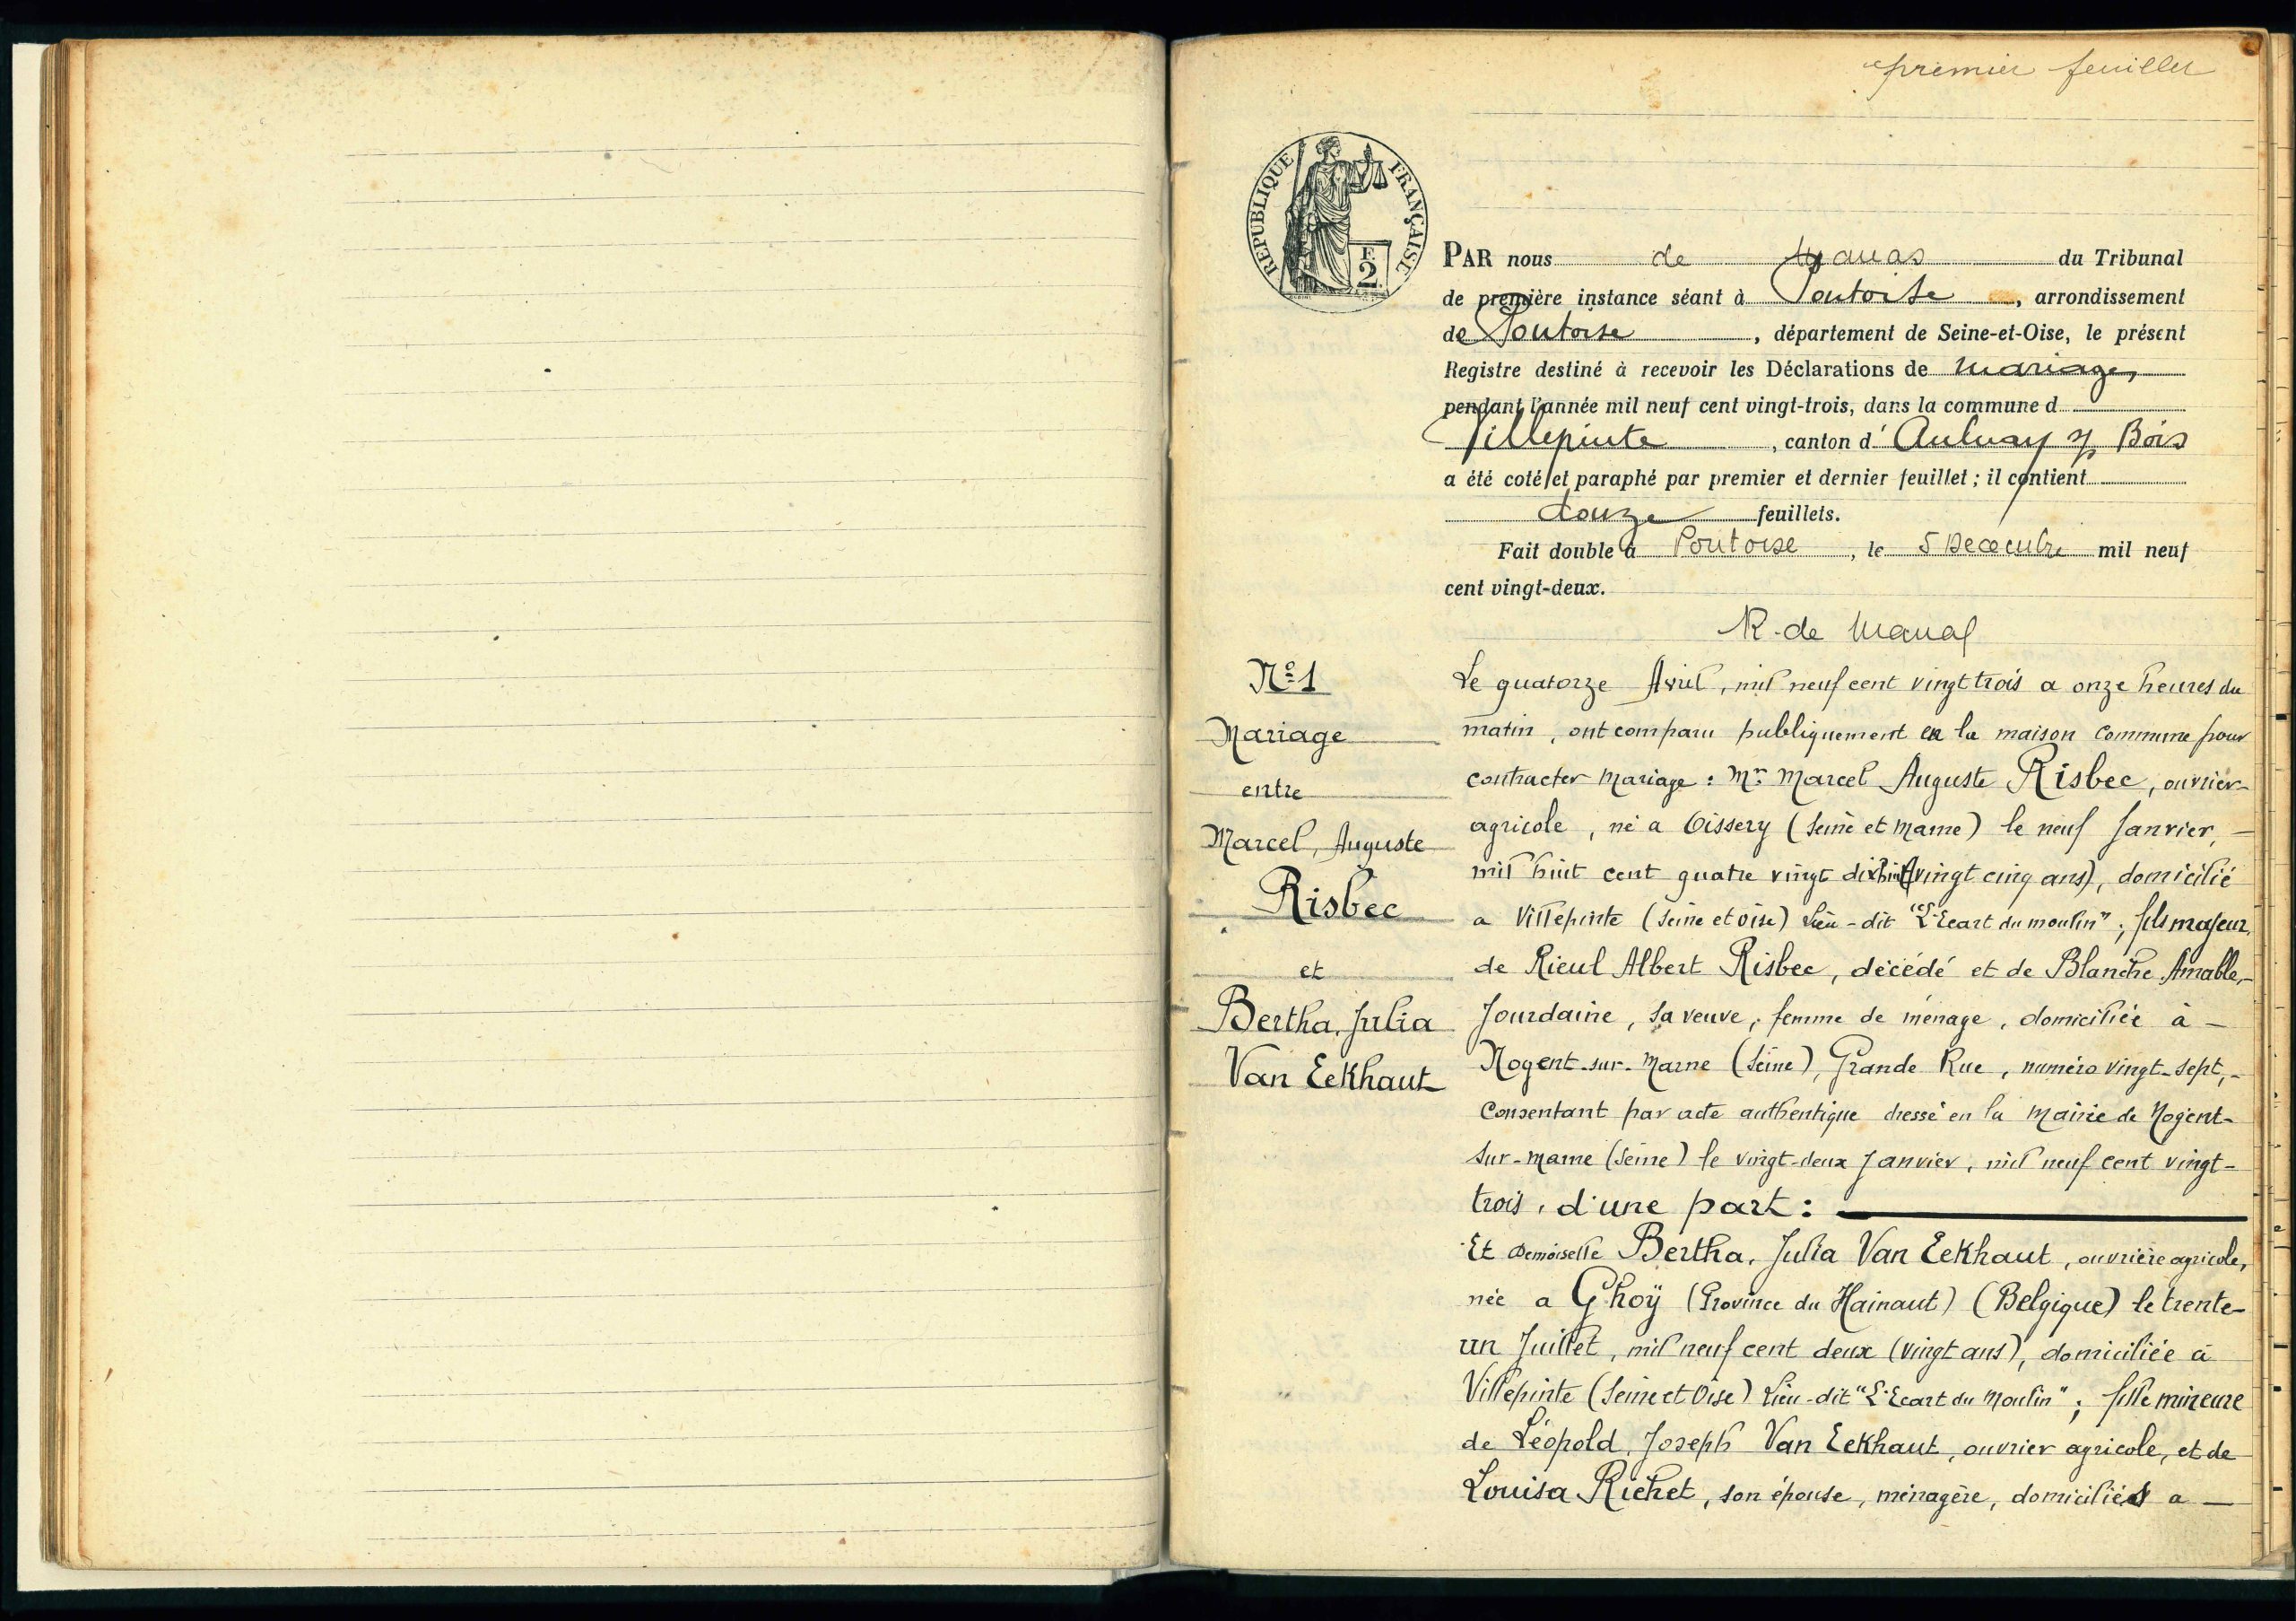 premier feuillet
RÉPUBLIQUE FRANÇAISE
F.
2.
PAR nous de Manas du Tribunal
de première instance séant à Pontoise, arrondissement
de Pontoise, département de Seine-et-Oise, le présent
Registre destiné à recevoir les Déclarations de mariage,
pendant l'année mil neuf cent vingt-trois, dans la commune d
Villepinte, canton d' Aulnay s/ Bois
a été coté et paraphé par premier et dernier feuillet ; il contient
douze feuillets.
Fait double à Pontoise, le 5 Décembre mil neuf
cent vingt-deux.
R. de Manas
Nº 1
Mariage
entre
Marcel, Auguste
Risbec
et
Bertha, Julia
Van Eekhaut
Le quatorze Avril, mil neuf cent vingt trois a onze heures du
matin, ont comparu publiquement en la maison commune pour
contracter mariage : Mr Marcel Auguste Risbec, ouvrier
agricole, né a Oissery (Seine et Marne) le neuf Janvier, —
mil huit cent quatre vingt dix huit (vingt cinq ans), domicilié
a Villepinte (Seine et Oise) Lieu-dit "L'Ecart du moulin" ; fils majeur,
de Rieul Albert Risbec, décédé et de Blanche Amable, —
Jourdaine, sa veuve, femme de ménage, domiciliée à —
Nogent-sur-Marne (Seine), Grande Rue, numéro vingt-sept, —
Consentant par acte authentique dressé en la Mairie de Nogent-
sur-Marne (Seine) le vingt-deux Janvier, mil neuf cent vingt-
trois, d'une part : —
Et Demoiselle Bertha, Julia Van Eekhaut, ouvrière agricole,
née a Ghoÿ (Province du Hainaut) (Belgique) le trente-
un Juillet, mil neuf cent deux (vingt ans), domiciliée à
Villepinte (Seine et Oise) Lieu-dit "L'Ecart du Moulin" ; fille mineure
de Léopold, Joseph Van Eekhaut, ouvrier agricole, et de
Louisa Richet, son épouse, ménagère, domiciliés a —